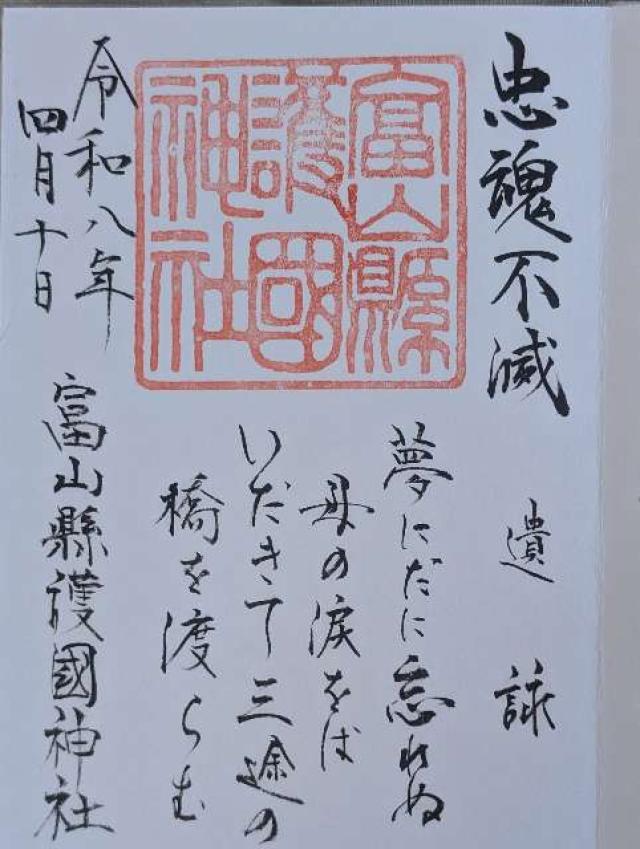 忠魂不滅
遺詠
夢にだに忘れぬ
母の涙をば
いだきて三途の
橋を渡らむ
富山縣
護國
神社
令和八年
四月十日
富山縣護國神社